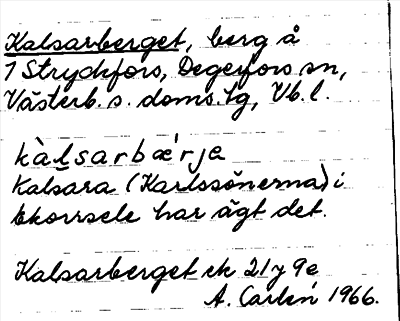 Kalsarberget, berg å
1 Strycksfors, Degerfors sn,
Västerb. s. doms. tg, Vb. l.
kàlsarbæ'rje
Kalsara (Karlssönerna) i
Ekorrsele har ägt det.
Kalsarberget ek 21 y 9e
A. Carlén 1966.